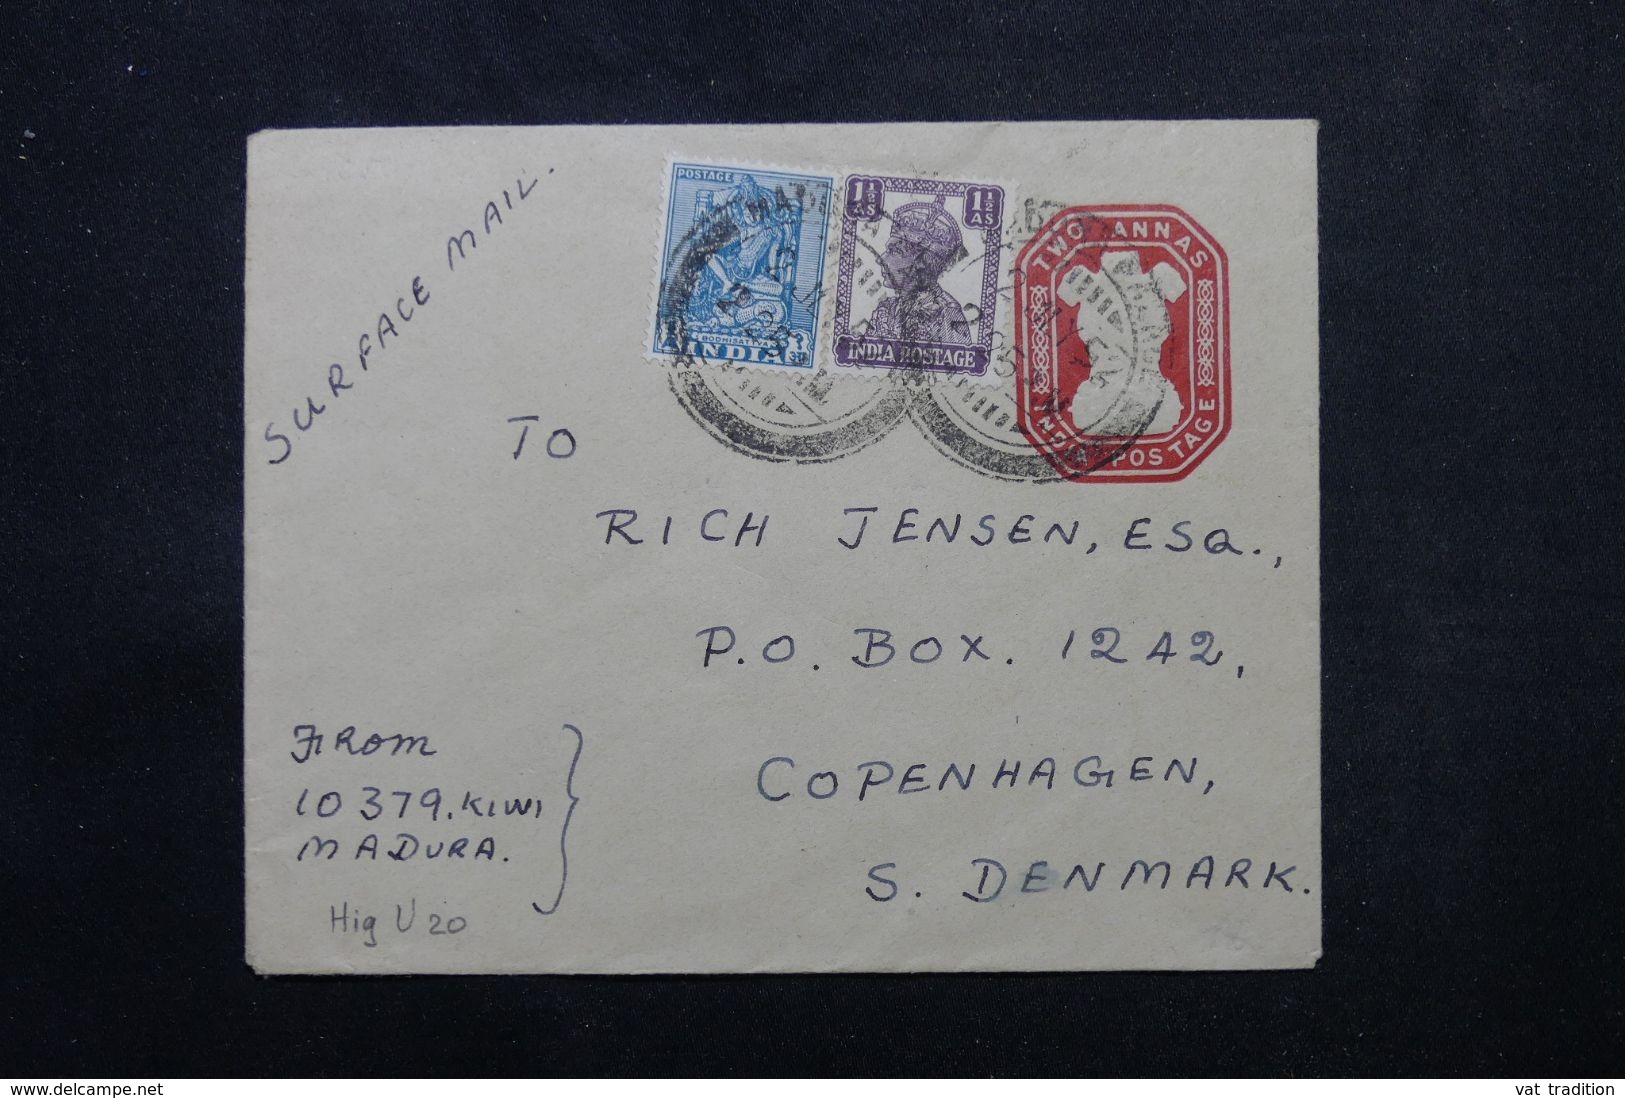 SURFACE MAIL.
POSTAGE
BODHISATTVA
INDIA
1½ AS
1½ AS
INDIA POSTAGE
TWO ANNAS
INDIA POSTAGE
TO
RICH JENSEN, ESQ.,
P.O. BOX. 1242,
COPENHAGEN,
S. DENMARK.
FROM
10379. KIWI
MADURA.
Hig U 20
www.delcampe.net
vat tradition